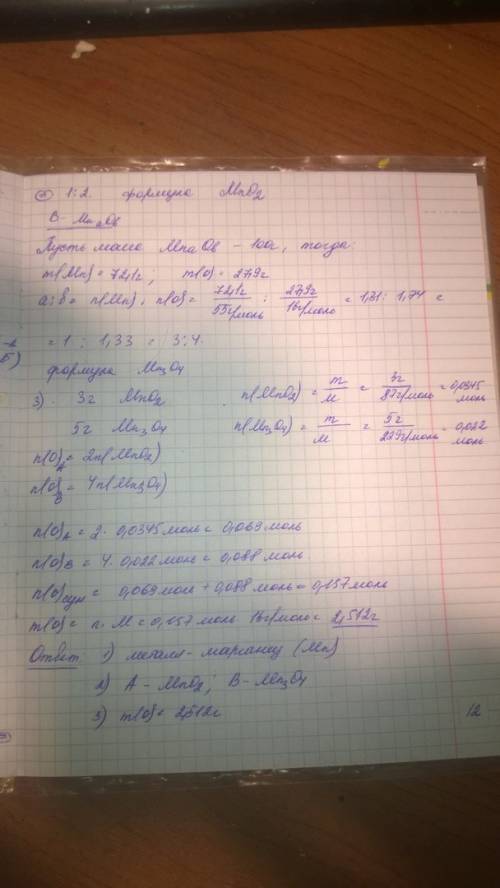 1:2. формула MnO2
B - MnaOb
Пусть масса MnaOb - 100г, тогда:
m(Mn) = 72,1г; m(O) = 27,9г
a:b = n(Mn) : n(O) = 72,1г/55г/моль : 27,9г/16г/моль = 1,31 : 1,74 =
= 1 : 1,33 = 3:4.
формула Mn3O4
3). 3г MnO2 n(MnO2) = m/M = 3г/87г/моль = 0,0345 моль
5г Mn3O4 n(Mn3O4) = m/M = 5г/229г/моль = 0,022 моль
n(O)A = 2n(MnO2)
n(O)B = 4n(Mn3O4)
n(O)A = 2 · 0,0345 моль = 0,069 моль
n(O)B = 4 · 0,022 моль = 0,088 моль
n(O)сум = 0,069 моль + 0,088 моль = 0,157 моль
m(O) = n · M = 0,157 моль · 16г/моль = 2,512г
Ответ: 1) металл - марганец (Mn)
2) A - MnO2; B - Mn3O4
3) m(O) = 2,512г
12